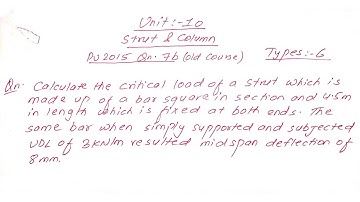 Unit:-10
Strut & Column
PU 2015 Qn. 7b (old course) Types:-6
Qn. Calculate the critical load of a strut which is
made up of a bar square in section and 4.5m
in length which is fixed at both ends. The
same bar when simply supported and subjected
UDL of 3kN/m resulted midspan deflection of
8mm.